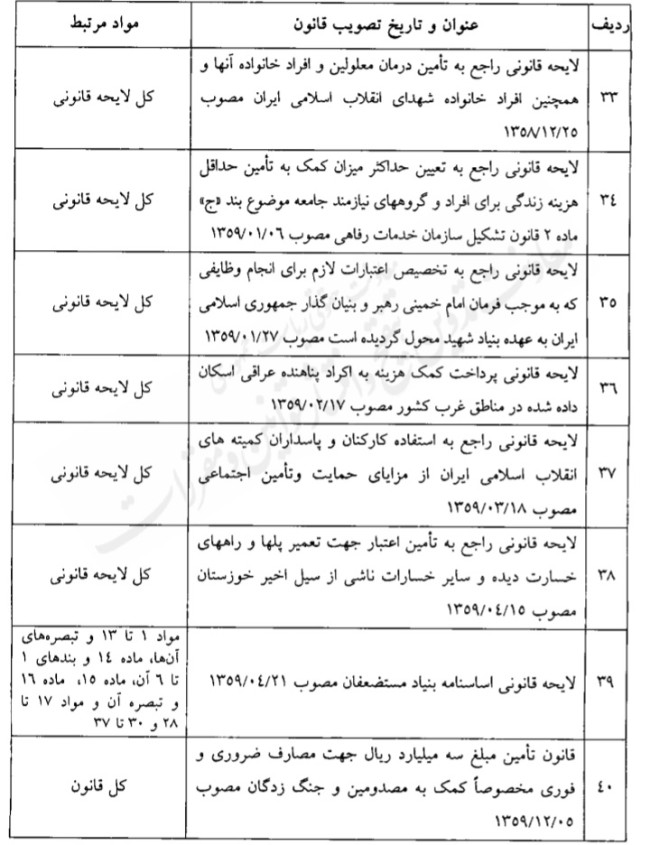 ردیف
عنوان و تاریخ تصویب قانون
مواد مرتبط
۳۳
لایحه قانونی راجع به تأمین درمان معلولین و افراد خانواده آنها و
همچنین افراد خانواده شهدای انقلاب اسلامی ایران مصوب
۱۳۵۸/۱۲/۲۵
کل لایحه قانونی
۳۴
لایحه قانونی راجع به تعیین حداکثر میزان کمک به تأمین حداقل
هزینه زندگی برای افراد و گروههای نیازمند جامعه موضوع بند «ج»
ماده ۲ قانون تشکیل سازمان خدمات رفاهی مصوب ۱۳۵۹/۰۱/۰۶
کل لایحه قانونی
۳۵
لایحه قانونی راجع به تخصیص اعتبارات لازم برای انجام وظایفی
که به موجب فرمان امام خمینی رهبر و بنیان گذار جمهوری اسلامی
ایران به عهده بنیاد شهید محول گردیده است مصوب ۱۳۵۹/۰۱/۲۷
کل لایحه قانونی
۳۶
لایحه قانونی پرداخت کمک هزینه به اکراد پناهنده عراقی اسکان
داده شده در مناطق غرب کشور مصوب ۱۳۵۹/۰۲/۱۷
کل لایحه قانونی
۳۷
لایحه قانونی راجع به استفاده کارکنان و پاسداران کمیته های
انقلاب اسلامی ایران از مزایای حمایت وتأمین اجتماعی
مصوب ۱۳۵۹/۰۳/۱۸
کل لایحه قانونی
۳۸
لایحه قانونی راجع به تأمین اعتبار جهت تعمیر پلها و راههای
خسارت دیده و سایر خسارات ناشی از سیل اخیر خوزستان
مصوب ۱۳۵۹/۰۴/۱۵
کل لایحه قانونی
۳۹
لایحه قانونی اساسنامه بنیاد مستضعفان مصوب ۱۳۵۹/۰۴/۲۱
مواد ۱ تا ۱۳ و تبصره‌های
آن‌ها، ماده ۱۴ و بندهای ۱
تا ۶ آن، ماده ۱۵، ماده ۱۶
و تبصره آن و مواد ۱۷ تا
۲۸ و ۳۰ تا ۳۷
۴۰
قانون تأمین مبلغ سه میلیارد ریال جهت مصارف ضروری و
فوری مخصوصاً کمک به مصدومین و جنگ زدگان مصوب
۱۳۵۹/۱۲/۰۵
کل قانون